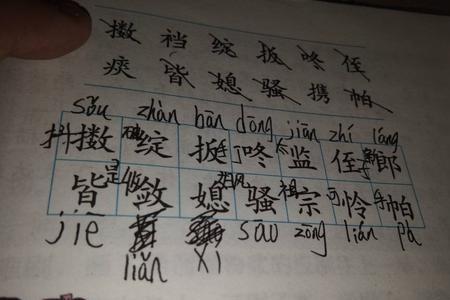 擞 裆 绽 扳 咚 侄
痰 皆 媳 骚 携 帕
sǒu zhàn bān dōng jiān zhí láng
抖擞 破绽 扳手 叮咚 太监 侄子 新郎
皆是 收敛 媳 风骚 祖宗 可怜 手帕
jiē liǎn xí sāo zōng lián pà